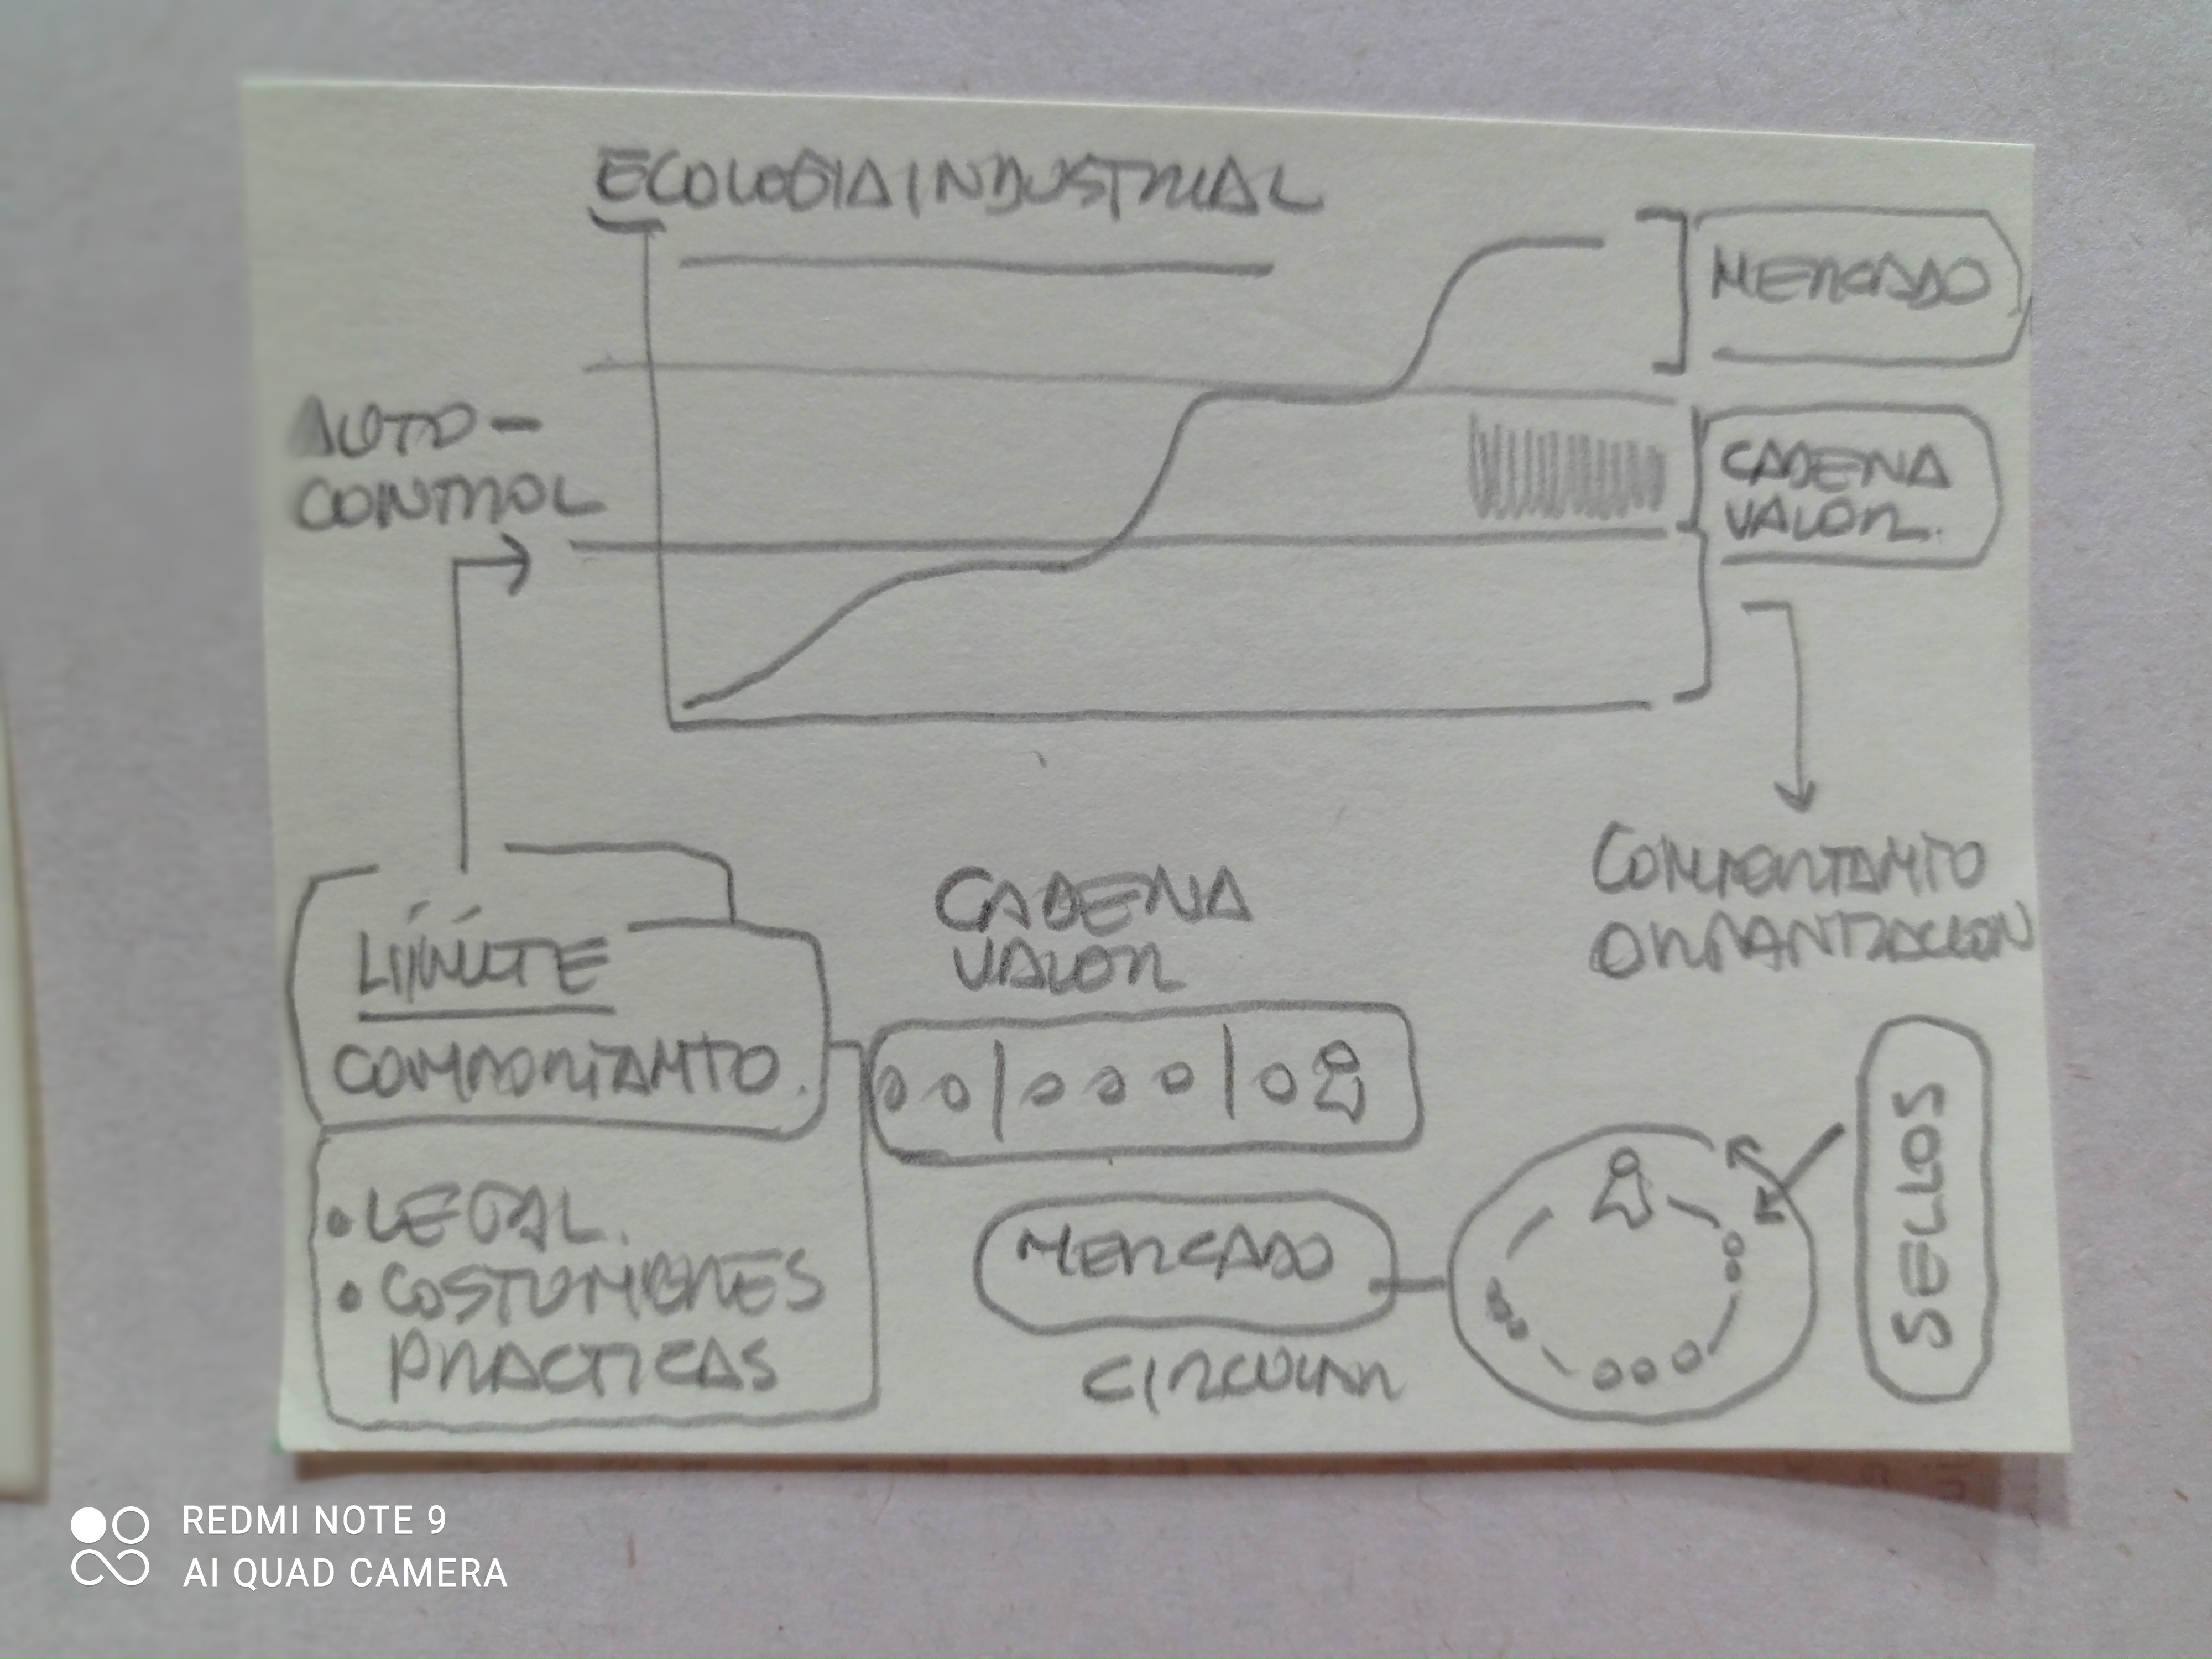 ECOLOGIA INDUSTRIAL
MERCADO
AUTO-
CONTROL
CADENA
VALOR.
COMPORTAMTO
ORGANIZACION
LIMITE
COMPORTAMTO.
• LEGAL.
• COSTUMBRES
PRACTICAS
CADENA
VALOR
MERCADO
CIRCULAR
SELLOS
REDMI NOTE 9
AI QUAD CAMERA